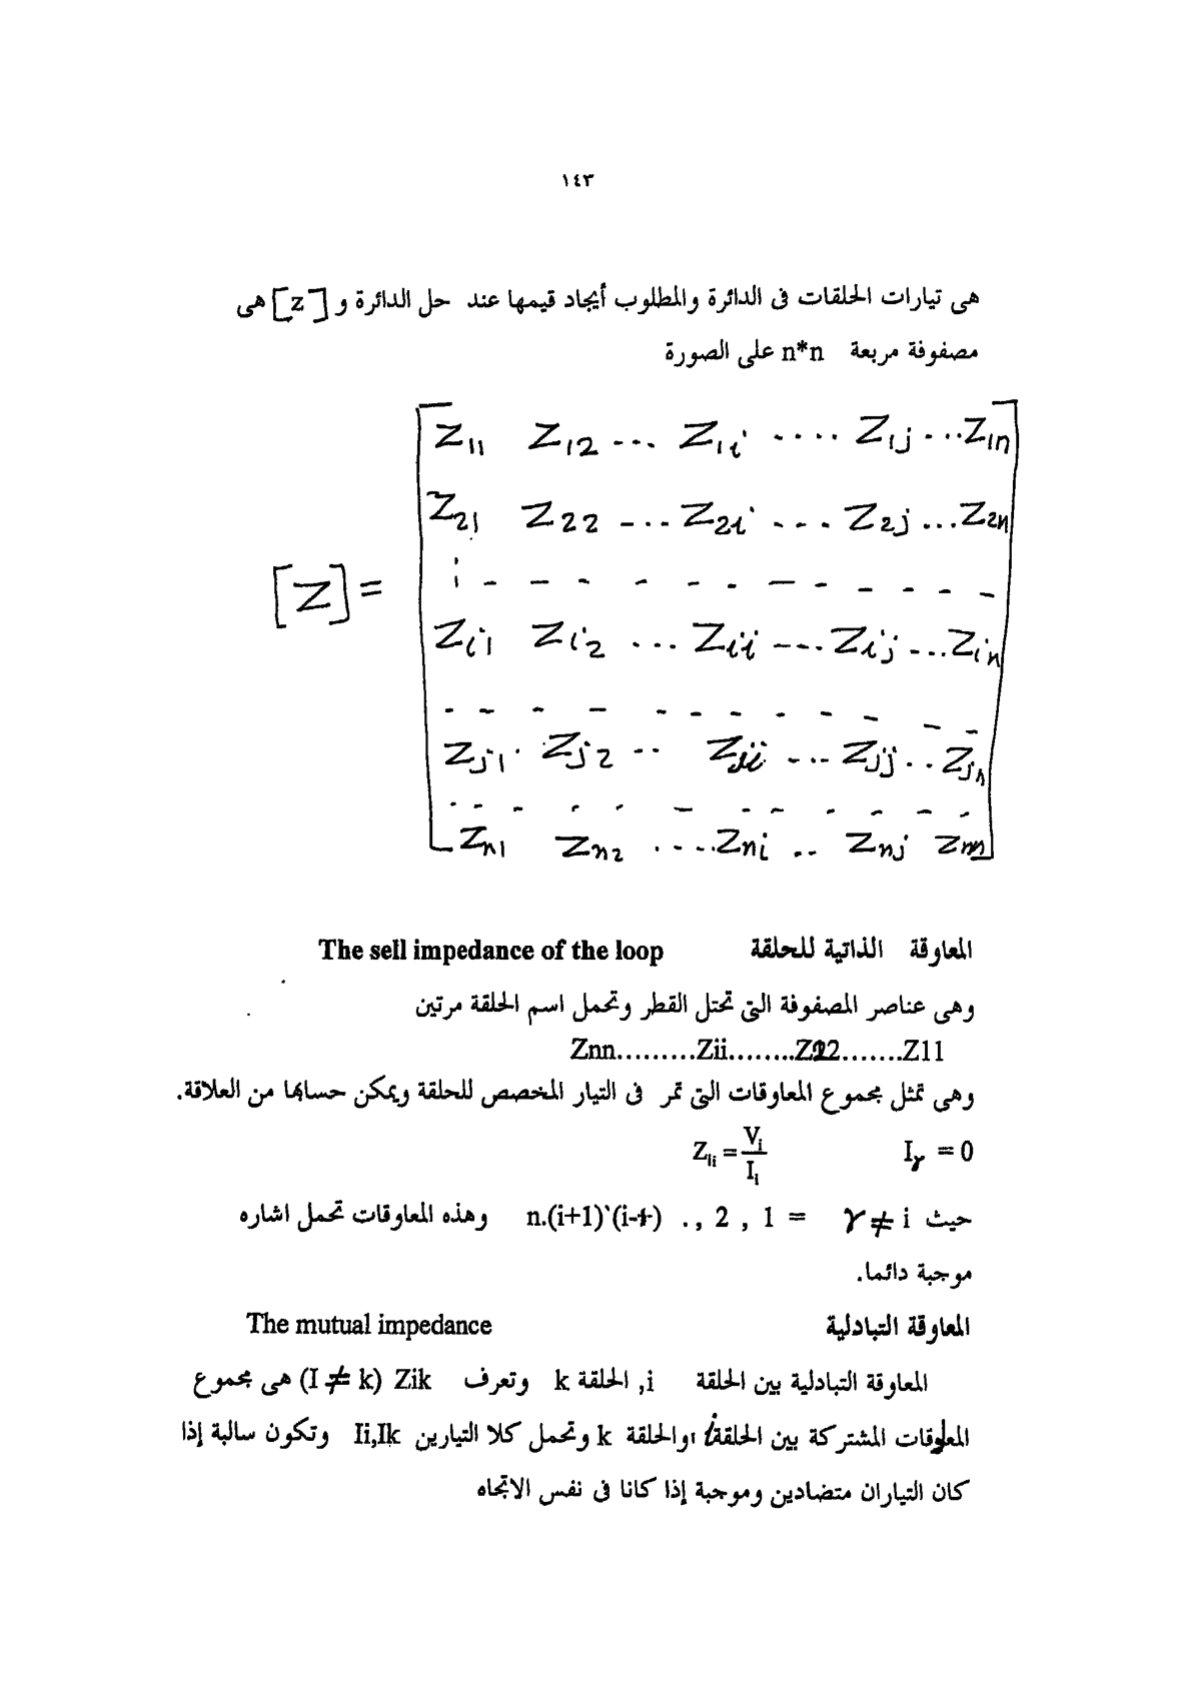 ١٤٣
هى تيارات الحلقات فى الدائرة والمطلوب أيجاد قيمها عند حل الدائرة و [z] هى
مصفوفة مربعة n*n على الصورة
Z11 Z12 --- Z1i ---- Z1j ---Z1n
Z21 Z22 ---- Z2i --- Z2j ...Z2n
[Z]=
Zi1 Zi2 ... Zii --- Zij ...Zin
Zj1 Zj2 -- Zji --- Zjj .. Zjn
Zn1 Zn2 ....Zni .. Znj Znn
المعاوقة الذاتية للحلقة The sell impedance of the loop
وهى عناصر المصفوفة التى تحتل القطر وتحمل اسم الحلقة مرتين
Znn.........Zii........Z22.......Z11
وهى تمثل مجموع المعاوقات التى تمر فى التيار المخصص للحلقة ويمكن حسابها من العلاقة.
Zii = Vi / Ii Iγ = 0
حيث γ ≠ i = 1 , 2 , . (i-1)`(i+1).n وهذه المعاوقات تحمل اشاره
موجبة دائما.
المعاوقة التبادلية The mutual impedance
المعاوقة التبادلية بين الحلقة i, الحلقة k وتعرف Zik (I ≠ k) هى مجموع
المعاوقات المشتركة بين الحلقة i والحلقة k وتحمل كلا التيارين Ii,Ik وتكون سالبة إذا
كان التياران متضادين وموجبة إذا كانا فى نفس الاتجاه